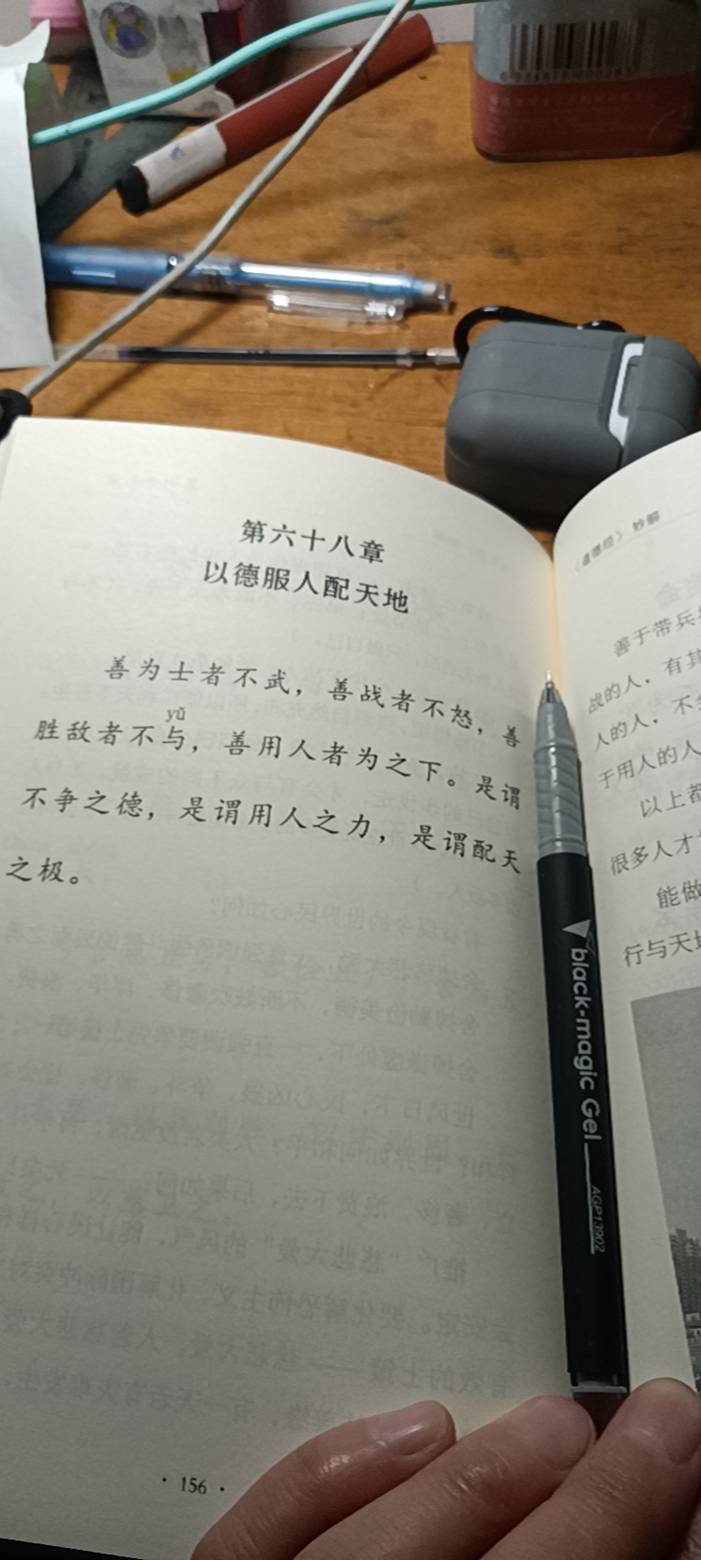 第六十八章
以德服人配天地
善为士者不武，善战者不怒，善
yǔ
胜敌者不与，善用人者为之下。是谓
不争之德，是谓用人之力，是谓配天
之极。
· 156 ·
《道德经》妙解
善于带兵
战的人，有其
人的人，不
于用人的人
以上都
很多人才
能做
行与天地
black-magic Gel
AGP13902